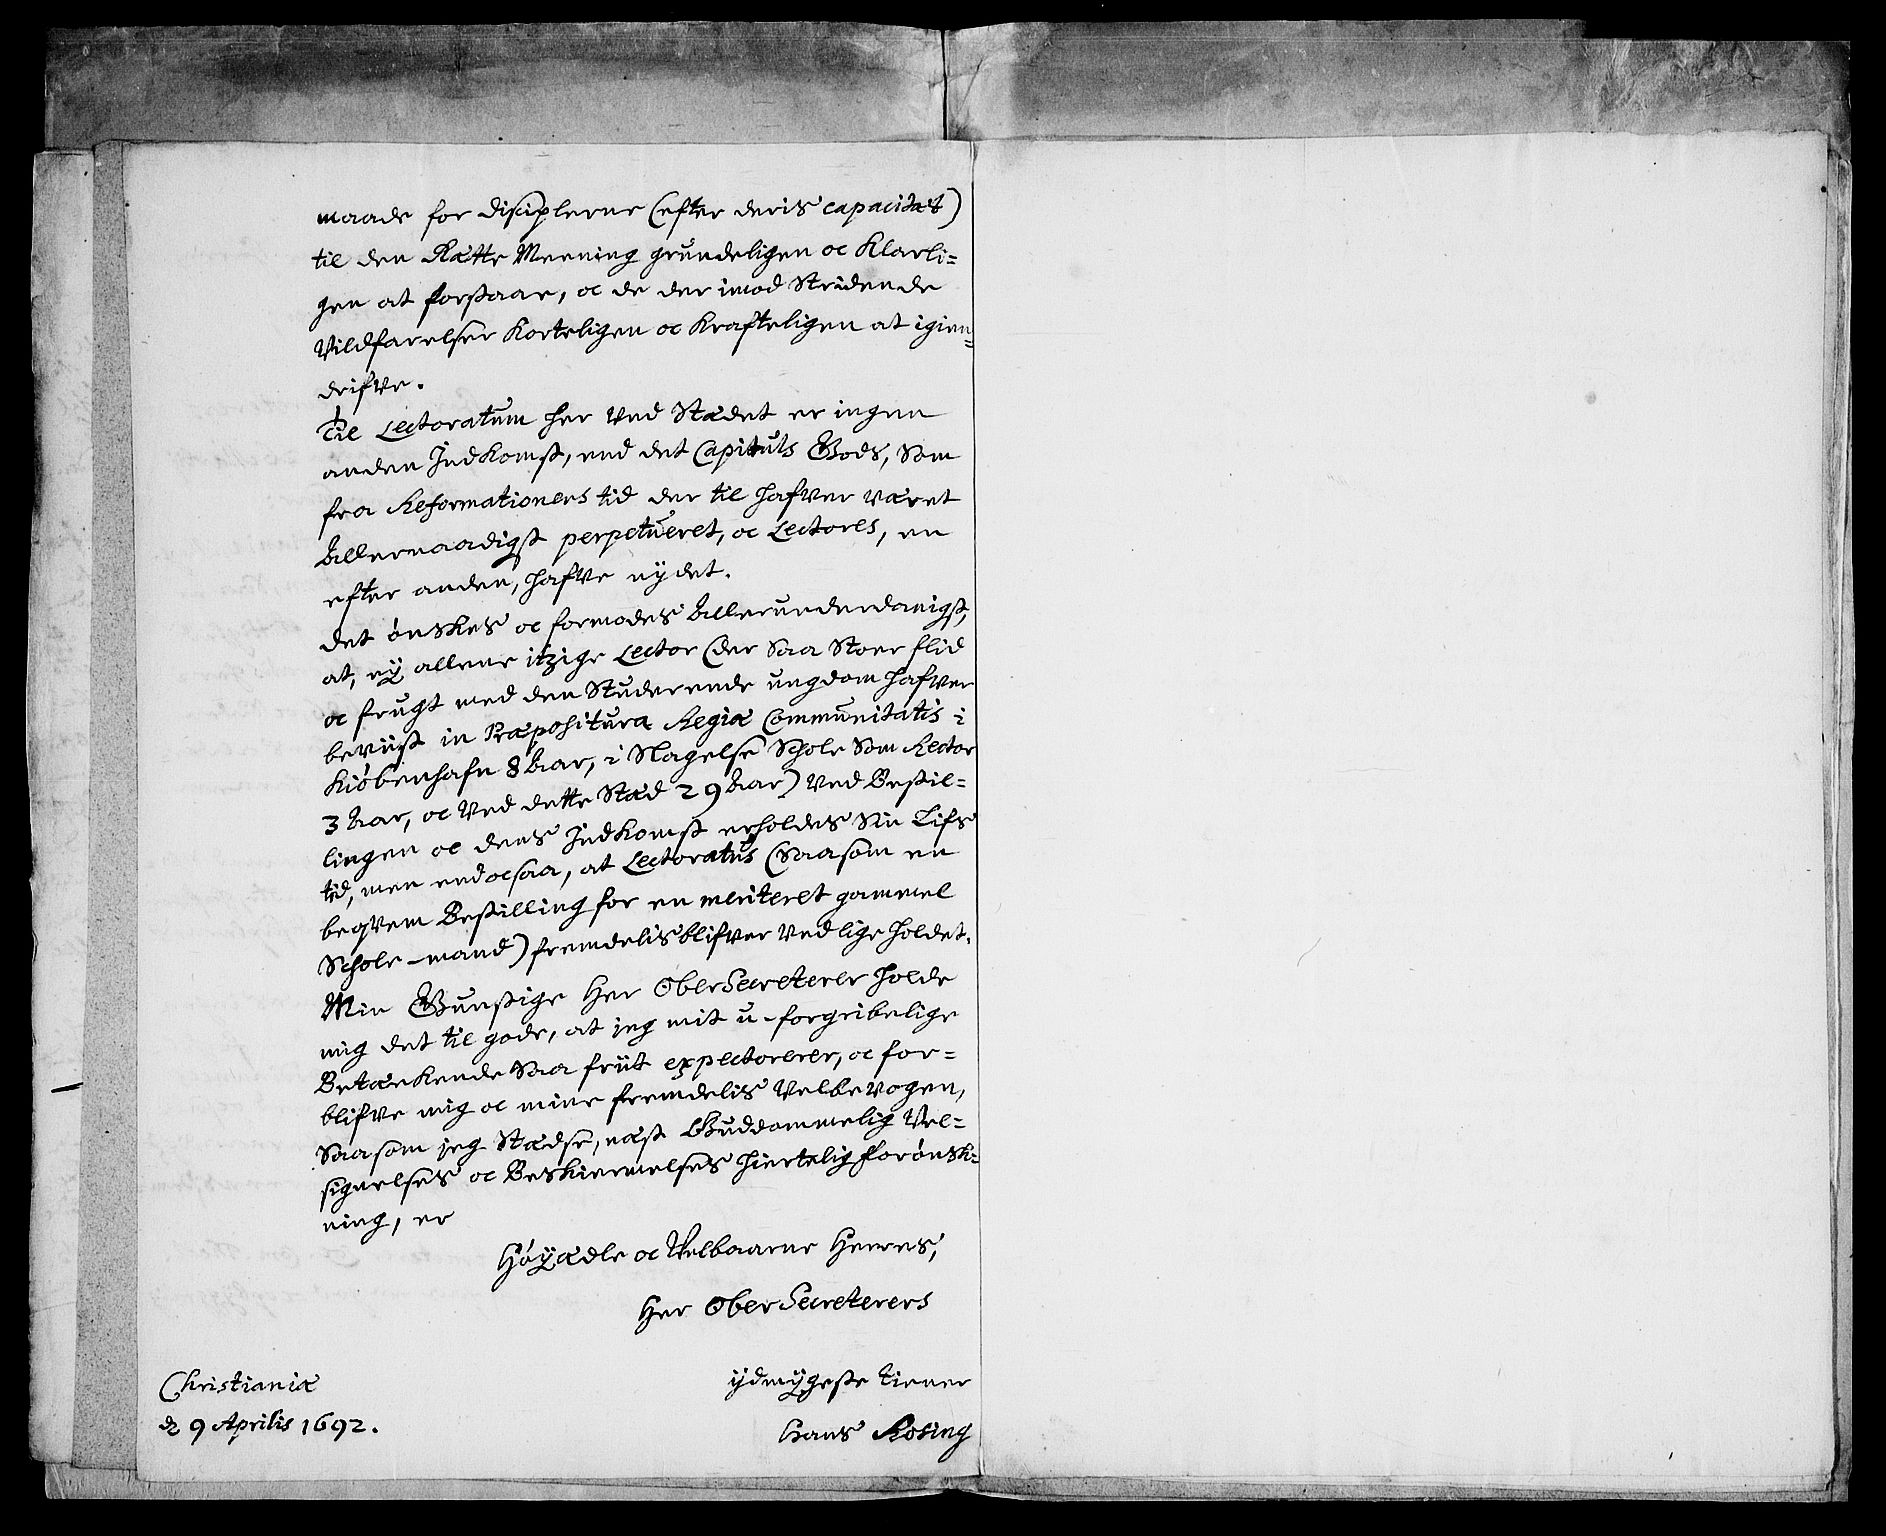 maade for disciplerne (efter deris capacitæt)
til den Rætte Meening grundeligen oc Klarli=
gen at forstaae, oc de der imod Stridende
Vildfarelser Korteligen oc Krafteligen at igien=
drifve.
Til Lectoratum her ved Stædet er ingen
anden Indkomst, end det Capituls Gods, Som
fra Reformationens tid der til hafver været
Allernaadigst perpetueret, oc Lectores, en
efter anden, hafve nydet.
det ønskes oc formodes Allerunderdanigst,
at, ey allene itzige Lector (der Saa Stoer flid
oc frugt med den Studerende ungdom hafver
beviist in Præpositura Regiæ Communitatis i
Kiøbenhafn 8 Aar, i Slagelse Schole Som Rector
3 Aar, oc ved dette Stæd 29 Aar) ved Bestil=
lingen oc dens Indkomst erholdes Sin Lifs
tid, men end ocsaa, at Lectoratus (Saasom en
beqvem Bestilling for en meriteret gammel
Schole-mand) fremdelis blifver ved lige holdet.
Min Gunstige Her OberSecreterer holde
mig det til gode, at jeg mit u-forgribelige
Betænkende Saa friit expectorerer, oc for=
blifve mig oc mine fremdelis Velbevogen,
Saasom jeg Stædse, næst Guddommelig Vel=
signelses oc Beskiermelses hiertelig forønsk=
ning, er
Høyædle oc Velbaarne Herres,
Her OberSecreterers
ydmygeste tiener
Hans Rosing
Christianiæ
d 9 Aprilis 1692.